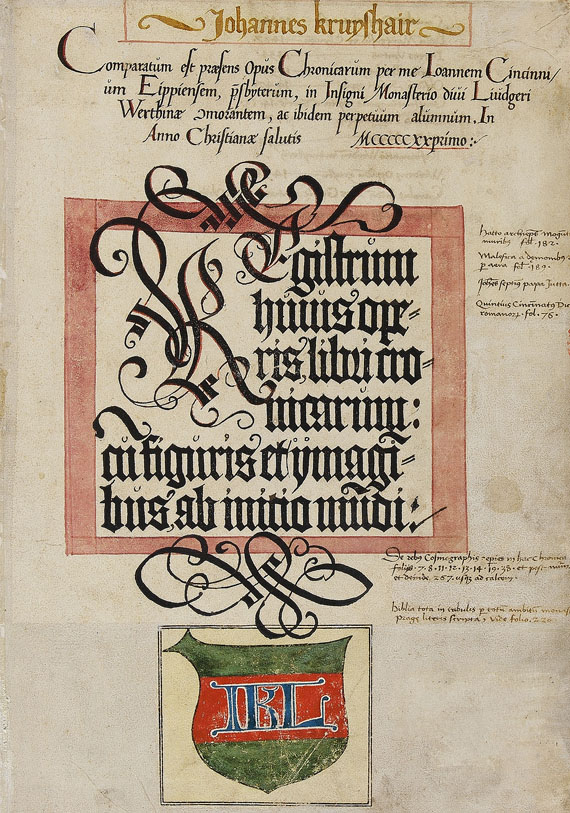 Johannes kruyshair
Comparatum est præsens Opus Chronicarum per me Ioannem Cincinni/
um Lippiensem, p̄sbyterum, in Insigni Monasterio diui Luidgeri
Werthinæ ɔmorantem, ac ibidem perpetuum alumnum. In
Anno Christianæ salutis MCCCCCxxprimo:
REgistrum
huius ope⸗
ris, libri cro⸗
nicarum:
cū figuris et ymagī⸗
bus, ab initio mūdi:
Hatto archiep̄s Mogu
muribus fol. 182.
Malefica a demonibus
p aera fol. 189.
Joh̄es septīus papa Jutta.
Quintius Cincinatus Dic
romanorꝝ. fol. 76.
De rebꝰ Cosmographie in hac Chronica
folijs. 7. 8. 11. 12. 13. 14. 19. 38. et post
et deinde, 267. usqꝫ ad calcem.
Biblia tota in tubulis p totū ambitū monas
Prage literis scripta, vide folio. 220
IKL